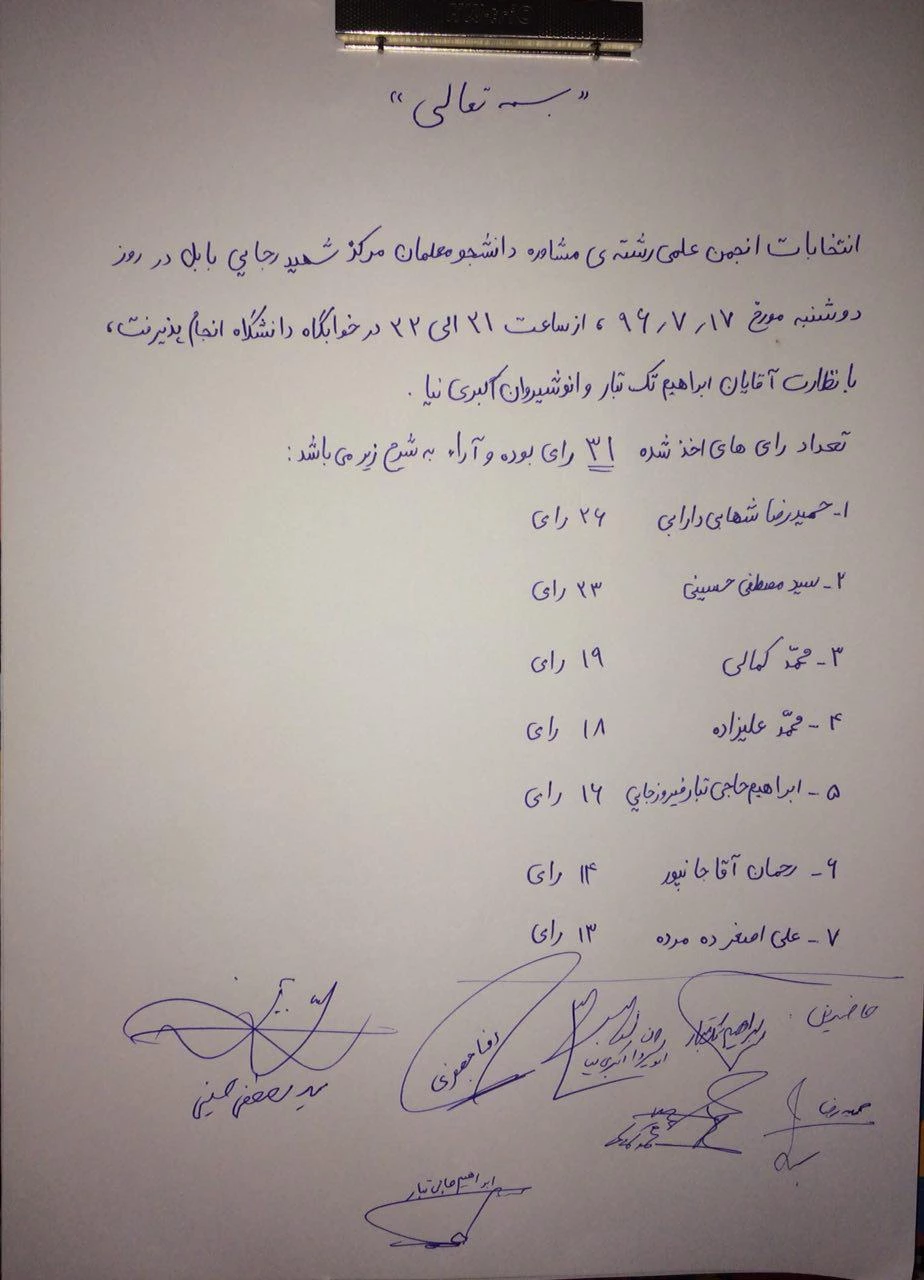 "بسمه تعالی"
انتخابات انجمن علمی رشته ی مشاوره دانشجو معلمان مرکز شهید رجایی بابل در روز
دوشنبه مورخ ۹۶٫۷٫۱۷ ، از ساعت ۲۱ الی ۲۲ در خوابگاه دانشگاه انجام پذیرفت،
با نظارت آقایان ابراهیم تک تبار و انوشیروان اکبری نیا .
تعداد رای های اخذ شده ۳۱ رای بوده و آراء به شرح زیر می باشد:
۱- حمیدرضا شهابی دارابی ۲۶ رای
۲- سید مصطفی حسینی ۲۳ رای
۳- محمّد کمالی ۱۹ رای
۴- محمّد علیزاده ۱۸ رای
۵- ابراهیم حاجی تبار فیروزجایی ۱۶ رای
۶- رحمان آقاجانپور ۱۴ رای
۷- علی اصغر ده مرده ۱۳ رای
حاضرین: ابراهیم تک تبار اکبری نیا رضا جعفری
سید مصطفی حسینی
حمیدرضا
ابراهیم حاجی تبار